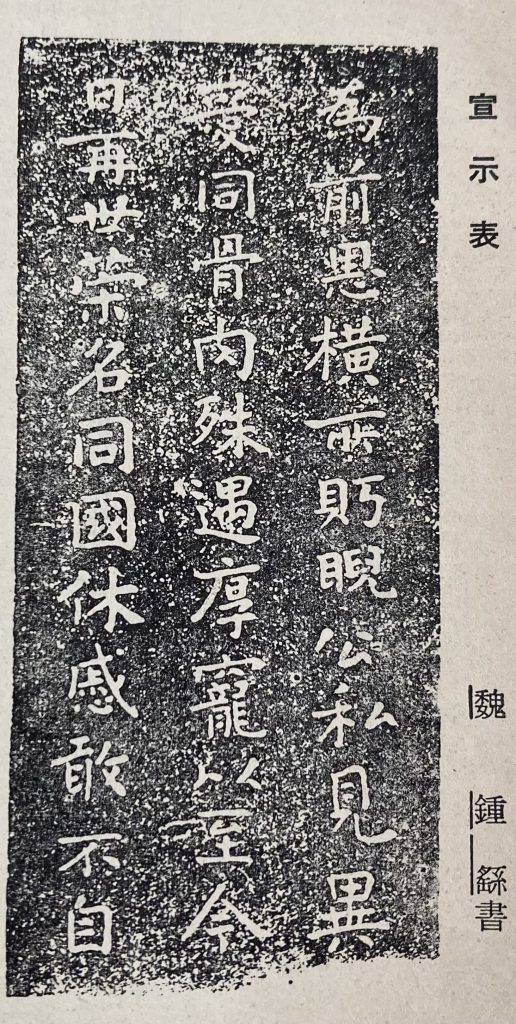 宣示表
魏 鍾䌛書
為前恩橫所眄睨公私見異
愛同骨肉殊遇厚寵以至今
日再世榮名同國休慼敢不自